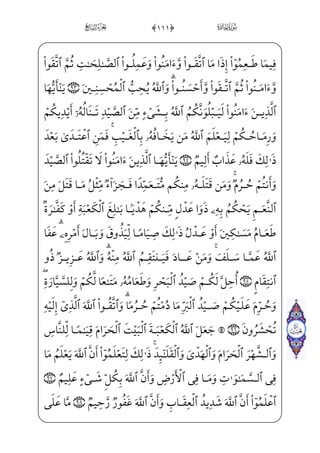 سُورَةُ المَائِدَةِ ﴿١١١﴾ الجُزْءُ السَّابِعُ
فِيمَا طَعِمُوٓا۟ إِذَا مَا ٱتَّقَوا۟ وَّءَامَنُوا۟ وَعَمِلُوا۟ ٱلصَّـٰلِحَـٰتِ ثُمَّ ٱتَّقَوا۟
وَّءَامَنُوا۟ ثُمَّ ٱتَّقَوا۟ وَّأَحْسَنُوا۟ ۗ وَٱللَّهُ يُحِبُّ ٱلْمُحْسِنِينَ ٩٣ يَـٰٓأَيُّهَا
ٱلَّذِينَ ءَامَنُوا۟ لَيَبْلُوَنَّكُمُ ٱللَّهُ بِشَىْءٍ مِّنَ ٱلصَّيْدِ تَنَالُهُۥٓ أَيْدِيكُمْ
وَرِمَاحُكُمْ لِيَعْلَمَ ٱللَّهُ مَن يَخَافُهُۥ بِٱلْغَيْبِ ۚ فَمَنِ ٱعْتَدَىٰ بَعْدَ
ذَٰلِكَ فَلَهُۥ عَذَابٌ أَلِيمٌ ٩٤ يَـٰٓأَيُّهَا ٱلَّذِينَ ءَامَنُوا۟ لَا تَقْتُلُوا۟ ٱلصَّيْدَ
وَأَنتُمْ حُرُمٌ ۚ وَمَن قَتَلَهُۥ مِنكُم مُّتَعَمِّدًا فَجَزَآءٌ مِّثْلُ مَا قَتَلَ مِنَ
ٱلنَّعَمِ يَحْكُمُ بِهِۦ ذَوَا عَدْلٍ مِّنكُمْ هَدْيًۢا بَـٰلِغَ ٱلْكَعْبَةِ أَوْ كَفَّـٰرَةٌ
طَعَامُ مَسَـٰكِينَ أَوْ عَدْلُ ذَٰلِكَ صِيَامًا لِّيَذُوقَ وَبَالَ أَمْرِهِۦ ۗ عَفَا
ٱللَّهُ عَمَّا سَلَفَ ۚ وَمَنْ عَادَ فَيَنتَقِمُ ٱللَّهُ مِنْهُ ۗ وَٱللَّهُ عَزِيزٌ ذُو
ٱنتِقَامٍ ٩٥ أُحِلَّ لَكُمْ صَيْدُ ٱلْبَحْرِ وَطَعَامُهُۥ مَتَـٰعًا لَّكُمْ وَلِلسَّيَّارَةِ ۖ
وَحُرِّمَ عَلَيْكُمْ صَيْدُ ٱلْبَرِّ مَا دُمْتُمْ حُرُمًا ۗ وَٱتَّقُوا۟ ٱللَّهَ ٱلَّذِىٓ إِلَيْهِ
تُحْشَرُونَ ٩٦ ۞ جَعَلَ ٱللَّهُ ٱلْكَعْبَةَ ٱلْبَيْتَ ٱلْحَرَامَ قِيَـٰمًا لِّلنَّاسِ
وَٱلشَّهْرَ ٱلْحَرَامَ وَٱلْهَدْىَ وَٱلْقَلَـٰٓئِدَ ۚ ذَٰلِكَ لِتَعْلَمُوٓا۟ أَنَّ ٱللَّهَ يَعْلَمُ مَا
فِى ٱلسَّمَـٰوَٰتِ وَمَا فِى ٱلْأَرْضِ وَأَنَّ ٱللَّهَ بِكُلِّ شَىْءٍ عَلِيمٌ ٩٧
ٱعْلَمُوٓا۟ أَنَّ ٱللَّهَ شَدِيدُ ٱلْعِقَابِ وَأَنَّ ٱللَّهَ غَفُورٌ رَّحِيمٌ ٩٨ مَّا عَلَى